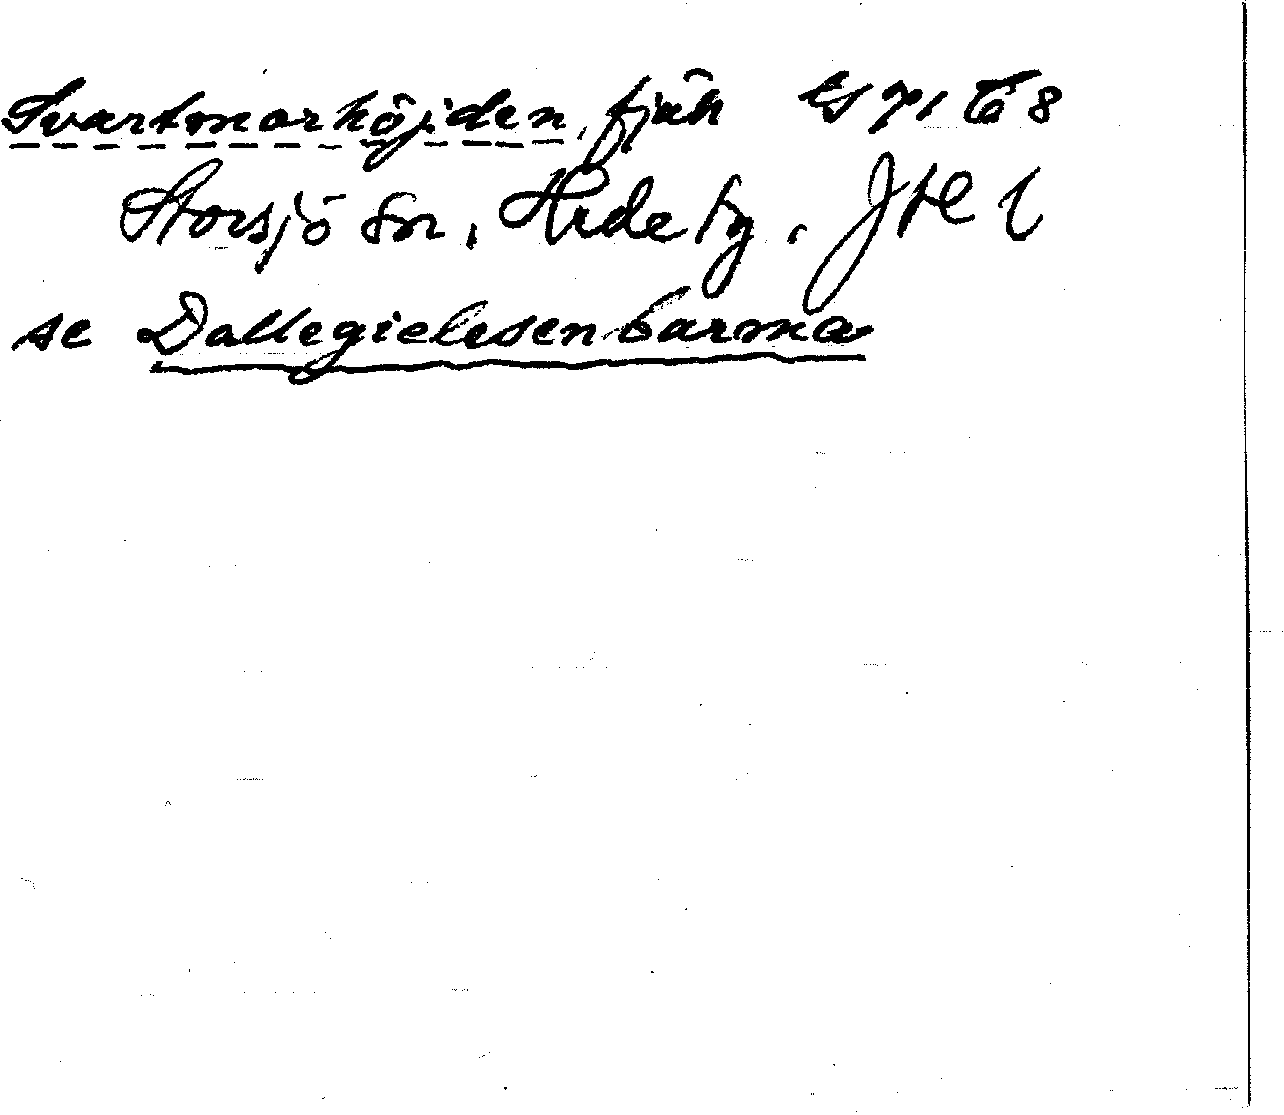 Svartmorhöjden, fjäll
Storsjö sn, Hrde tg. Jtl l
se Dallegielesenbarma